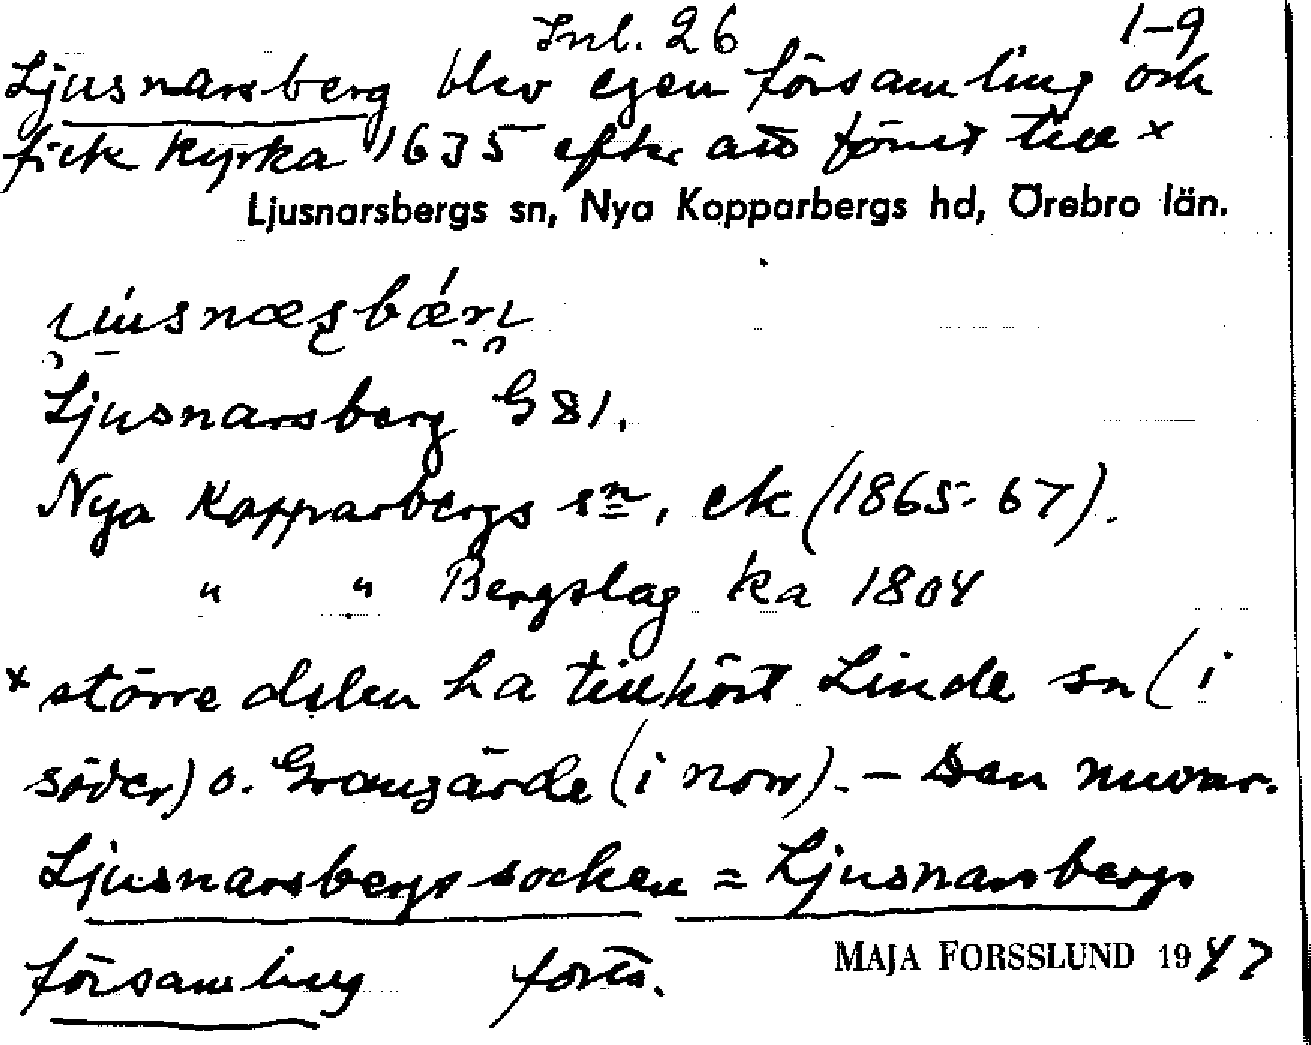 Inl. 26 1-9
Ljusnarsberg blev egen församling och
fick kyrka 1635 efter att förut till x
Ljusnarsbergs sn, Nya Kopparbergs hd, Örebro län.
Ljusnarsberg G 81.
Nya Kopparbergs sn, ek (1865-67).
" " Bergslag ka 1804
x större delen ha tillhört Linde sn (i
söder) o. Grangärde (i norr). - Den nuvar.
Ljusnarsbergs socken = Ljusnarsbergs
församling forts.
MAJA FORSSLUND 1947